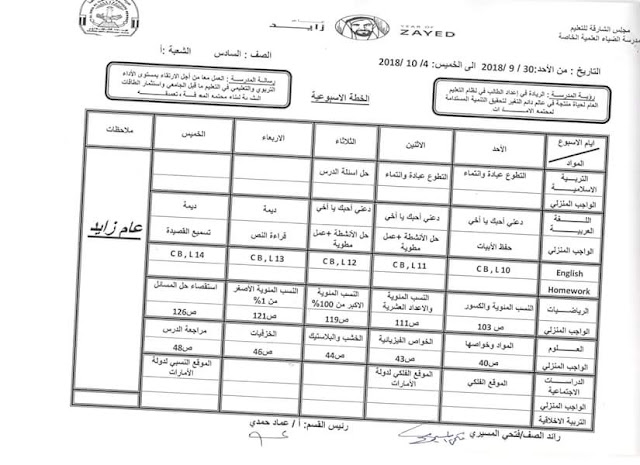 مجلس الشارقة للتعليم
مدرسة الضياء العلمية الخاصة
عام
زايد
YEAR OF
ZAYED
التاريخ : من الأحد: 30/ 9 / 2018 الى الخميس: 4/ 10 /2018
الصف : السادس الشعبة: أ
رؤية المدرسة : الريادة في إعداد الطالب في نظام التعليم
العام لحياة منتجة في عالم دائم التغير لتحقيق التنمية المستدامة
الخطة الاسبوعية
رسالة المدرسة : العمل معا من أجل الارتقاء بمستوى الأداء
التربوي والتعليمي في التعليم ما قبل الجامعي واستثمار الطاقات
ايام الاسبوع
المواد
الأحد الاثنين الثلاثاء الاربعاء الخميس ملاحظات
التربية الاسلامية
التطوع عبادة وانتماء التطوع عبادة وانتماء حل اسئلة الدرس
الواجب المنزلي
اللغة العربية
دعني أحبك يا أخي دعني أحبك يا أخي دعني أحبك يا أخي ديمة ديمة
الواجب المنزلي
حفظ الأبيات حل الأنشطة +عمل مطوية حل الأنشطة +عمل مطوية قراءة النص تسميع القصيدة
English
C B , L 10 C B , L 11 C B , L 12 C B , L 13 C B , L 14
Homework
الرياضيات
النسب المئوية والكسور النسب المئوية والاعداد العشرية النسب المئوية الاكبر من 100% النسب المئوية الأصغر من 1% استقصاء حل المسائل
الواجب المنزلي
ص 103 ص111 ص119 ص121 ص126
العلوم
المواد وخواصها الخواص الفيزيائية الخشب والبلاستيك الخزفيات مراجعة الدرس
الواجب المنزلي
ص40 ص43 ص44 ص46 ص48
الدراسات الاجتماعية
الموقع الفلكي الموقع الفلكي لدولة الأمارات الموقع النسبي لدولة الأمارات
الواجب المنزلي
التربية الاخلاقية
عام زايد
رائد الصف/فتحي المسيري
رئيس القسم: أ / عماد حمدي